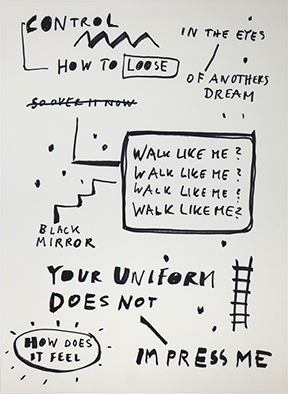 CONTROL
HOW TO LOOSE
IN THE EYES
OF ANOTHERS
DREAM
SO OVER IT NOW
WALK LIKE ME?
WALK LIKE ME?
WALK LIKE ME?
WALK LIKE ME?
BLACK
MIRROR
YOUR UNIFORM
DOES NOT
IMPRESS ME
HOW DOES
IT FEEL